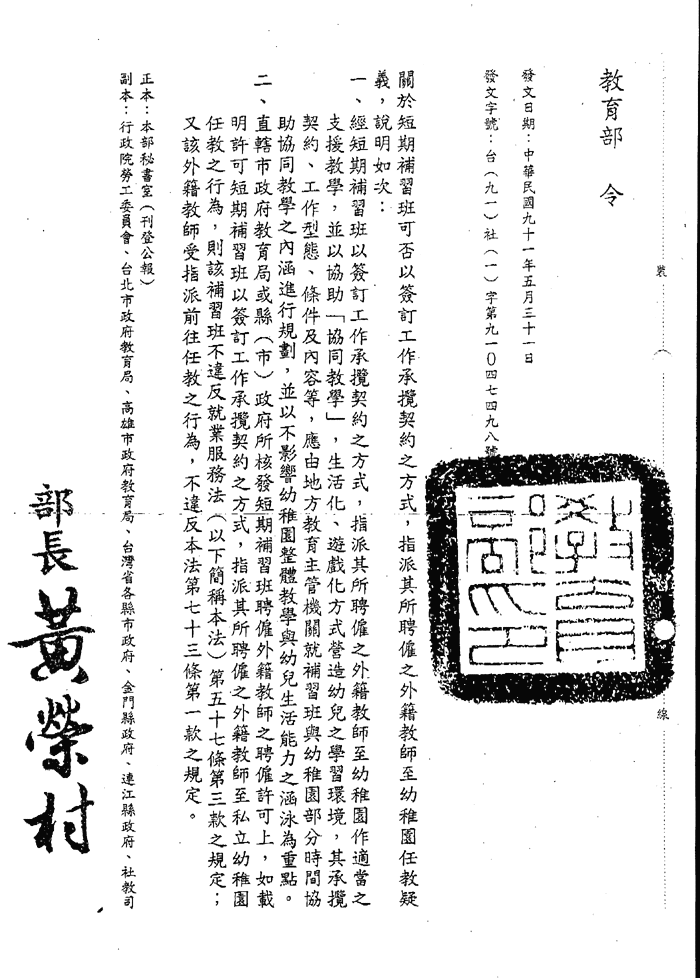 教育部 令
發文日期：中華民國九十一年五月三十一日
發文字號：台（九一）社（一）字第九一０四七四九八號
關於短期補習班可否以簽訂工作承攬契約之方式，指派其所聘僱之外籍教師至幼稚園任教疑
義，說明如次：
一、經短期補習班以簽訂工作承攬契約之方式，指派其所聘僱之外籍教師至幼稚園作適當之
支援教學，並以協助「協同教學」，生活化、遊戲化方式營造幼兒之學習環境，其承攬
契約、工作型態、條件及內容等，應由地方教育主管機關就補習班與幼稚園部分時間協
助協同教學之內涵進行規劃，並以不影響幼稚園整體教學與幼兒生活能力之涵泳為重點。
二、直轄市政府教育局或縣（市）政府所核發短期補習班聘僱外籍教師之聘僱許可上，如載
明許可短期補習班以簽訂工作承攬契約之方式，指派其所聘僱之外籍教師至私立幼稚園
任教之行為，則該補習班不違反就業服務法（以下簡稱本法）第五十七條第三款之規定；
又該外籍教師受指派前往任教之行為，不違反本法第七十三條第一款之規定。
正本：本部秘書室（刊登公報）
副本：行政院勞工委員會、台北市政府教育局、高雄市政府教育局、台灣省各縣市政府、金門縣政府、連江縣政府、社教司
部長 黃榮村
裝
線